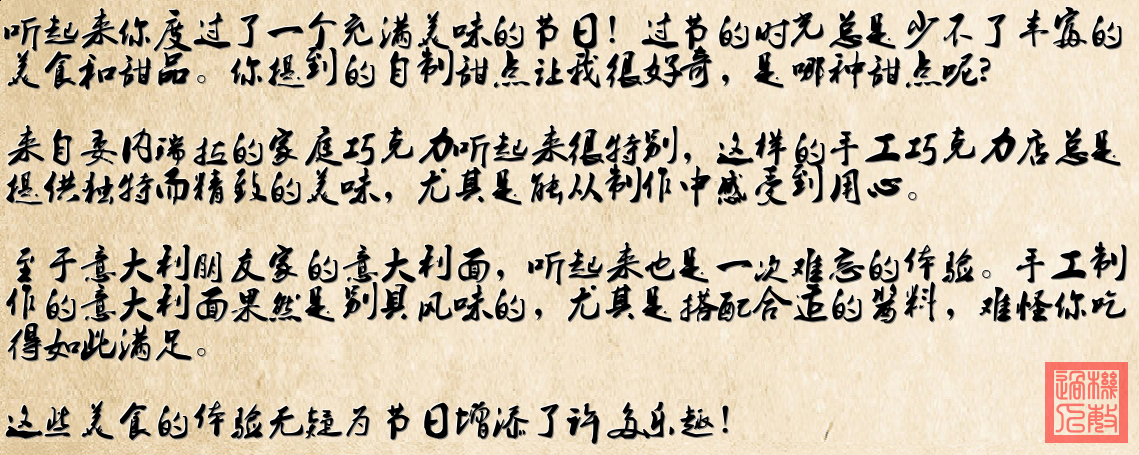 听起来你度过了一个充满美味的节日！过节的时光总是少不了丰富的
美食和甜品。你提到的自制甜点让我很好奇，是哪种甜点呢？
来自委内瑞拉的家庭巧克力听起来很特别，这样的手工巧克力店总是
提供独特而精致的美味，尤其是能从制作中感受到用心。
至于意大利朋友家的意大利面，听起来也是一次难忘的体验。手工制
作的意大利面果然是别具风味的，尤其是搭配合适的酱料，难怪你吃
得如此满足。
这些美食的体验无疑为节日增添了许多乐趣！